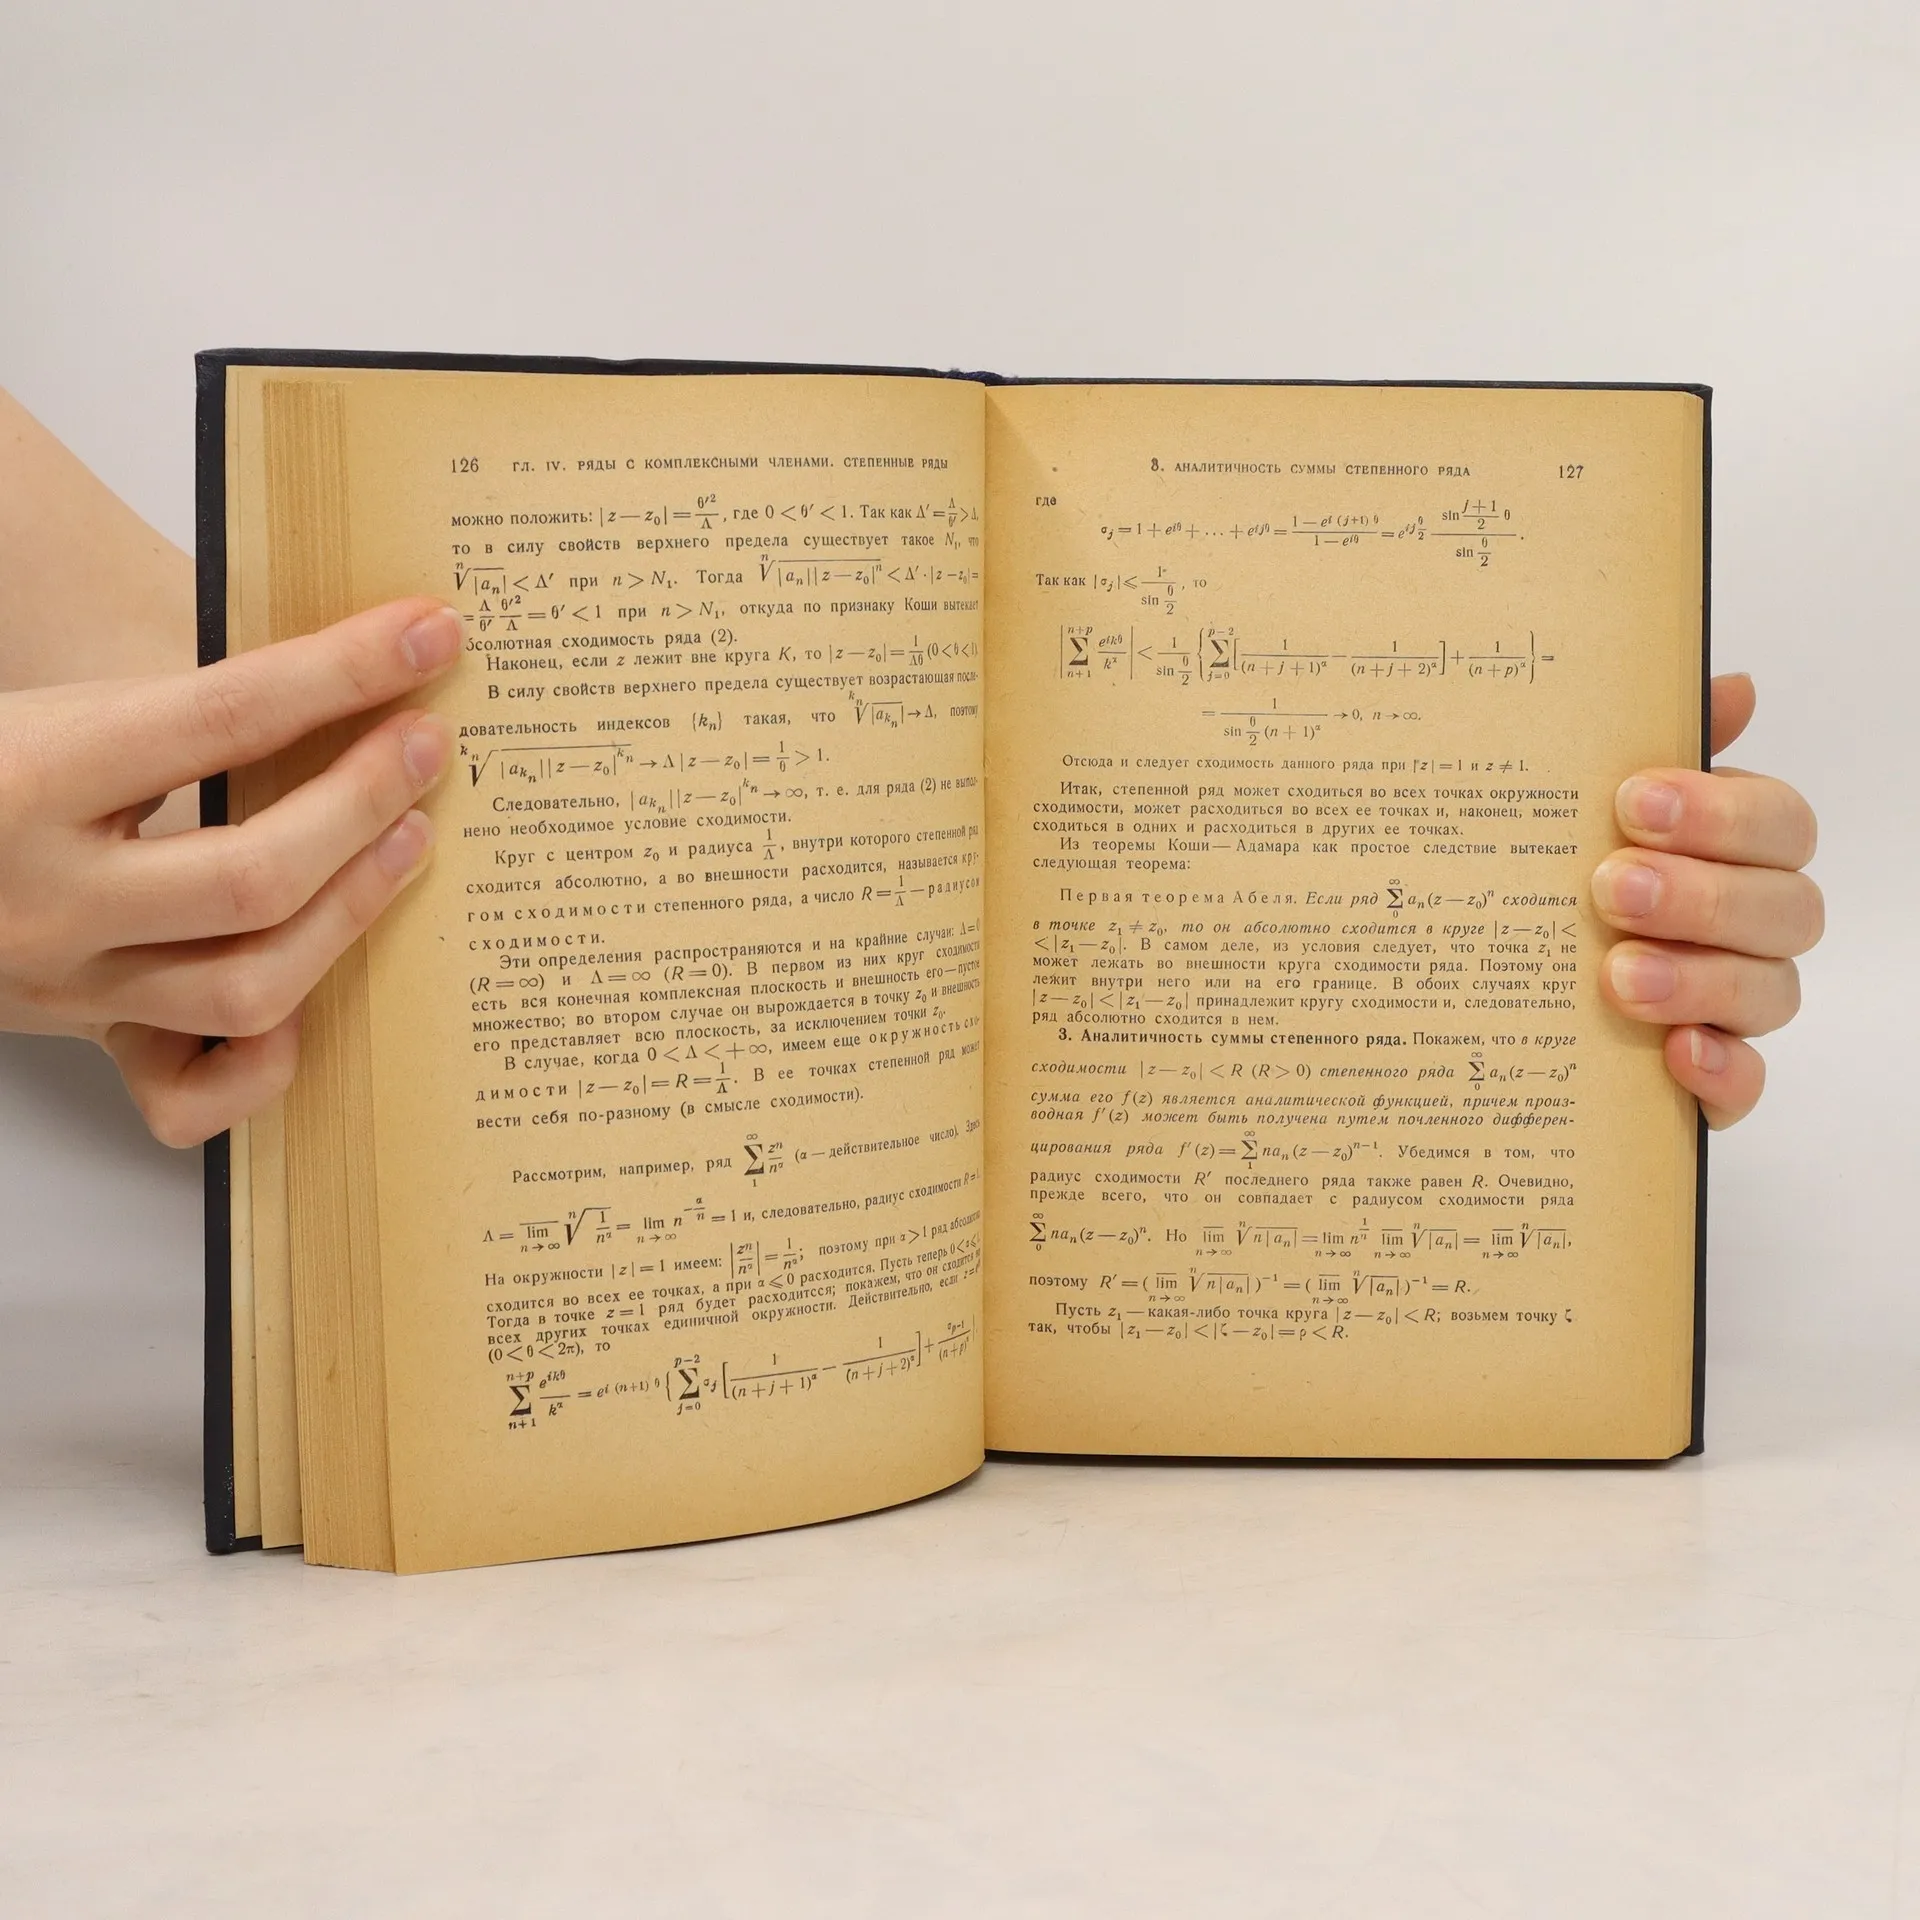 126 ГЛ. IV. РЯДЫ С КОМПЛЕКСНЫМИ ЧЛЕНАМИ. СТЕПЕННЫЕ РЯДЫ
можно положить: |z — z₀| = θ′²/Λ, где 0 < θ′ < 1. Так как Λ′ = Λ/θ′ > Λ,
то в силу свойств верхнего предела существует такое N₁, что
ⁿ√|aₙ| < Λ′ при n > N₁. Тогда ⁿ√|aₙ||z — z₀|ⁿ < Λ′ · |z — z₀| =
= Λ/θ′ θ′²/Λ = θ′ < 1 при n > N₁, откуда по признаку Коши вытекает
абсолютная сходимость ряда (2).
Наконец, если z лежит вне круга K, то |z — z₀| = 1/Λθ (0 < θ < 1).
В силу свойств верхнего предела существует возрастающая после-
довательность индексов {kₙ} такая, что ᵏₙ√|a_kₙ| → Λ, поэтому
ᵏₙ√|a_kₙ||z — z₀|^kₙ → Λ|z — z₀| = 1/θ > 1.
Следовательно, |a_kₙ||z — z₀|^kₙ → ∞, т. е. для ряда (2) не выпол-
нено необходимое условие сходимости.
Круг с центром z₀ и радиуса 1/Λ, внутри которого степенной ряд
сходится абсолютно, а во внешности расходится, называется кру-
гом сходимости степенного ряда, а число R = 1/Λ — радиусом
сходимости.
Эти определения распространяются и на крайние случаи: Λ = 0
(R = ∞) и Λ = ∞ (R = 0). В первом из них круг сходимости
есть вся конечная комплексная плоскость и внешность его — пустое
множество; во втором случае он вырождается в точку z₀ и внешность
его представляет всю плоскость, за исключением точки z₀.
В случае, когда 0 < Λ < +∞, имеем еще окружность схо-
димости |z — z₀| = R = 1/Λ. В ее точках степенной ряд может
вести себя по-разному (в смысле сходимости).
Рассмотрим, например, ряд ∑₁^∞ zⁿ/n^α (α — действительное число). Здесь
Λ = lim̅ₙ→∞ ⁿ√(1/n^α) = limₙ→∞ n^(−α/n) = 1 и, следовательно, радиус сходимости R = 1.
На окружности |z| = 1 имеем: |zⁿ/n^α| = 1/n^α; поэтому при α > 1 ряд абсолютно
сходится во всех ее точках, а при α ⩽ 0 расходится. Пусть теперь 0 < α ⩽ 1.
Тогда в точке z = 1 ряд будет расходится; покажем, что он сходится во
всех других точках единичной окружности. Действительно, если z = e^iθ
(0 < θ < 2π), то
∑ₙ₊₁^(n+p) e^(ikθ)/k^α = e^(i(n+1)θ) {∑_(j=0)^(p−2) σⱼ [1/(n+j+1)^α — 1/(n+j+2)^α] + σ_(p−1)/(n+p)^α},
3. АНАЛИТИЧНОСТЬ СУММЫ СТЕПЕННОГО РЯДА 127
где
σⱼ = 1 + e^(iθ) + ... + e^(ijθ) = (1 — e^(i(j+1)θ))/(1 — e^(iθ)) = e^(ijθ/2) (sin (j+1)/2 θ)/(sin θ/2).
Так как |σⱼ| ⩽ 1/(sin θ/2), то
|∑ₙ₊₁^(n+p) e^(ikθ)/k^α| < 1/(sin θ/2) {∑_(j=0)^(p−2) [1/(n+j+1)^α — 1/(n+j+2)^α] + 1/(n+p)^α} =
= 1/(sin θ/2 (n+1)^α) → 0, n → ∞.
Отсюда и следует сходимость данного ряда при |z| = 1 и z ≠ 1.
Итак, степенной ряд может сходиться во всех точках окружности
сходимости, может расходиться во всех ее точках и, наконец, может
сходиться в одних и расходиться в других ее точках.
Из теоремы Коши — Адамара как простое следствие вытекает
следующая теорема:
Первая теорема Абеля. Если ряд ∑₀^∞ aₙ(z — z₀)ⁿ сходится
в точке z₁ ≠ z₀, то он абсолютно сходится в круге |z — z₀| <
< |z₁ — z₀|. В самом деле, из условия следует, что точка z₁ не
может лежать во внешности круга сходимости ряда. Поэтому она
лежит внутри него или на его границе. В обоих случаях круг
|z — z₀| < |z₁ — z₀| принадлежит кругу сходимости и, следовательно,
ряд абсолютно сходится в нем.
3. Аналитичность суммы степенного ряда. Покажем, что в круге
сходимости |z — z₀| < R (R > 0) степенного ряда ∑₀^∞ aₙ(z — z₀)ⁿ
сумма его f(z) является аналитической функцией, причем произ-
водная f′(z) может быть получена путем почленного дифферен-
цирования ряда f′(z) = ∑₁^∞ naₙ(z — z₀)ⁿ⁻¹. Убедимся в том, что
радиус сходимости R′ последнего ряда также равен R. Очевидно,
прежде всего, что он совпадает с радиусом сходимости ряда
∑₀^∞ naₙ(z — z₀)ⁿ. Но lim̅ₙ→∞ ⁿ√n|aₙ| = limₙ→∞ n^(1/n) lim̅ₙ→∞ ⁿ√|aₙ| = lim̅ₙ→∞ ⁿ√|aₙ|,
поэтому R′ = (lim̅ₙ→∞ ⁿ√n|aₙ|)⁻¹ = (lim̅ₙ→∞ ⁿ√|aₙ|)⁻¹ = R.
Пусть z₁ — какая-либо точка круга |z — z₀| < R; возьмем точку ζ
так, чтобы |z₁ — z₀| < |ζ — z₀| = ρ < R.